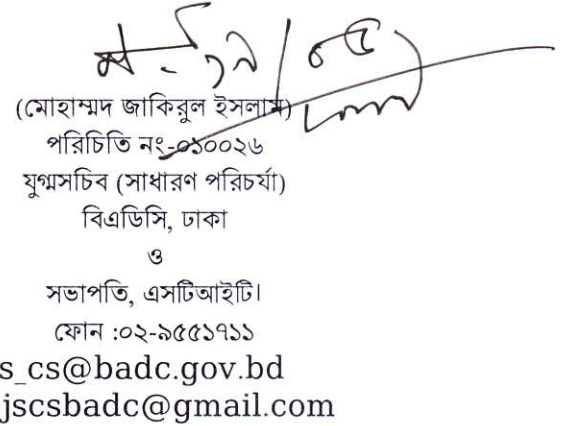 (মোহাম্মদ জাকিরুল ইসলাম)
পরিচিতি নং-০১০০২৬
যুগ্মসচিব (সাধারণ পরিচর্যা)
বিএডিসি, ঢাকা
ও
সভাপতি, এসটিআইটি।
ফোন :০২-৯৫৫১৭১১
s_cs@badc.gov.bd
jscsbadc@gmail.com